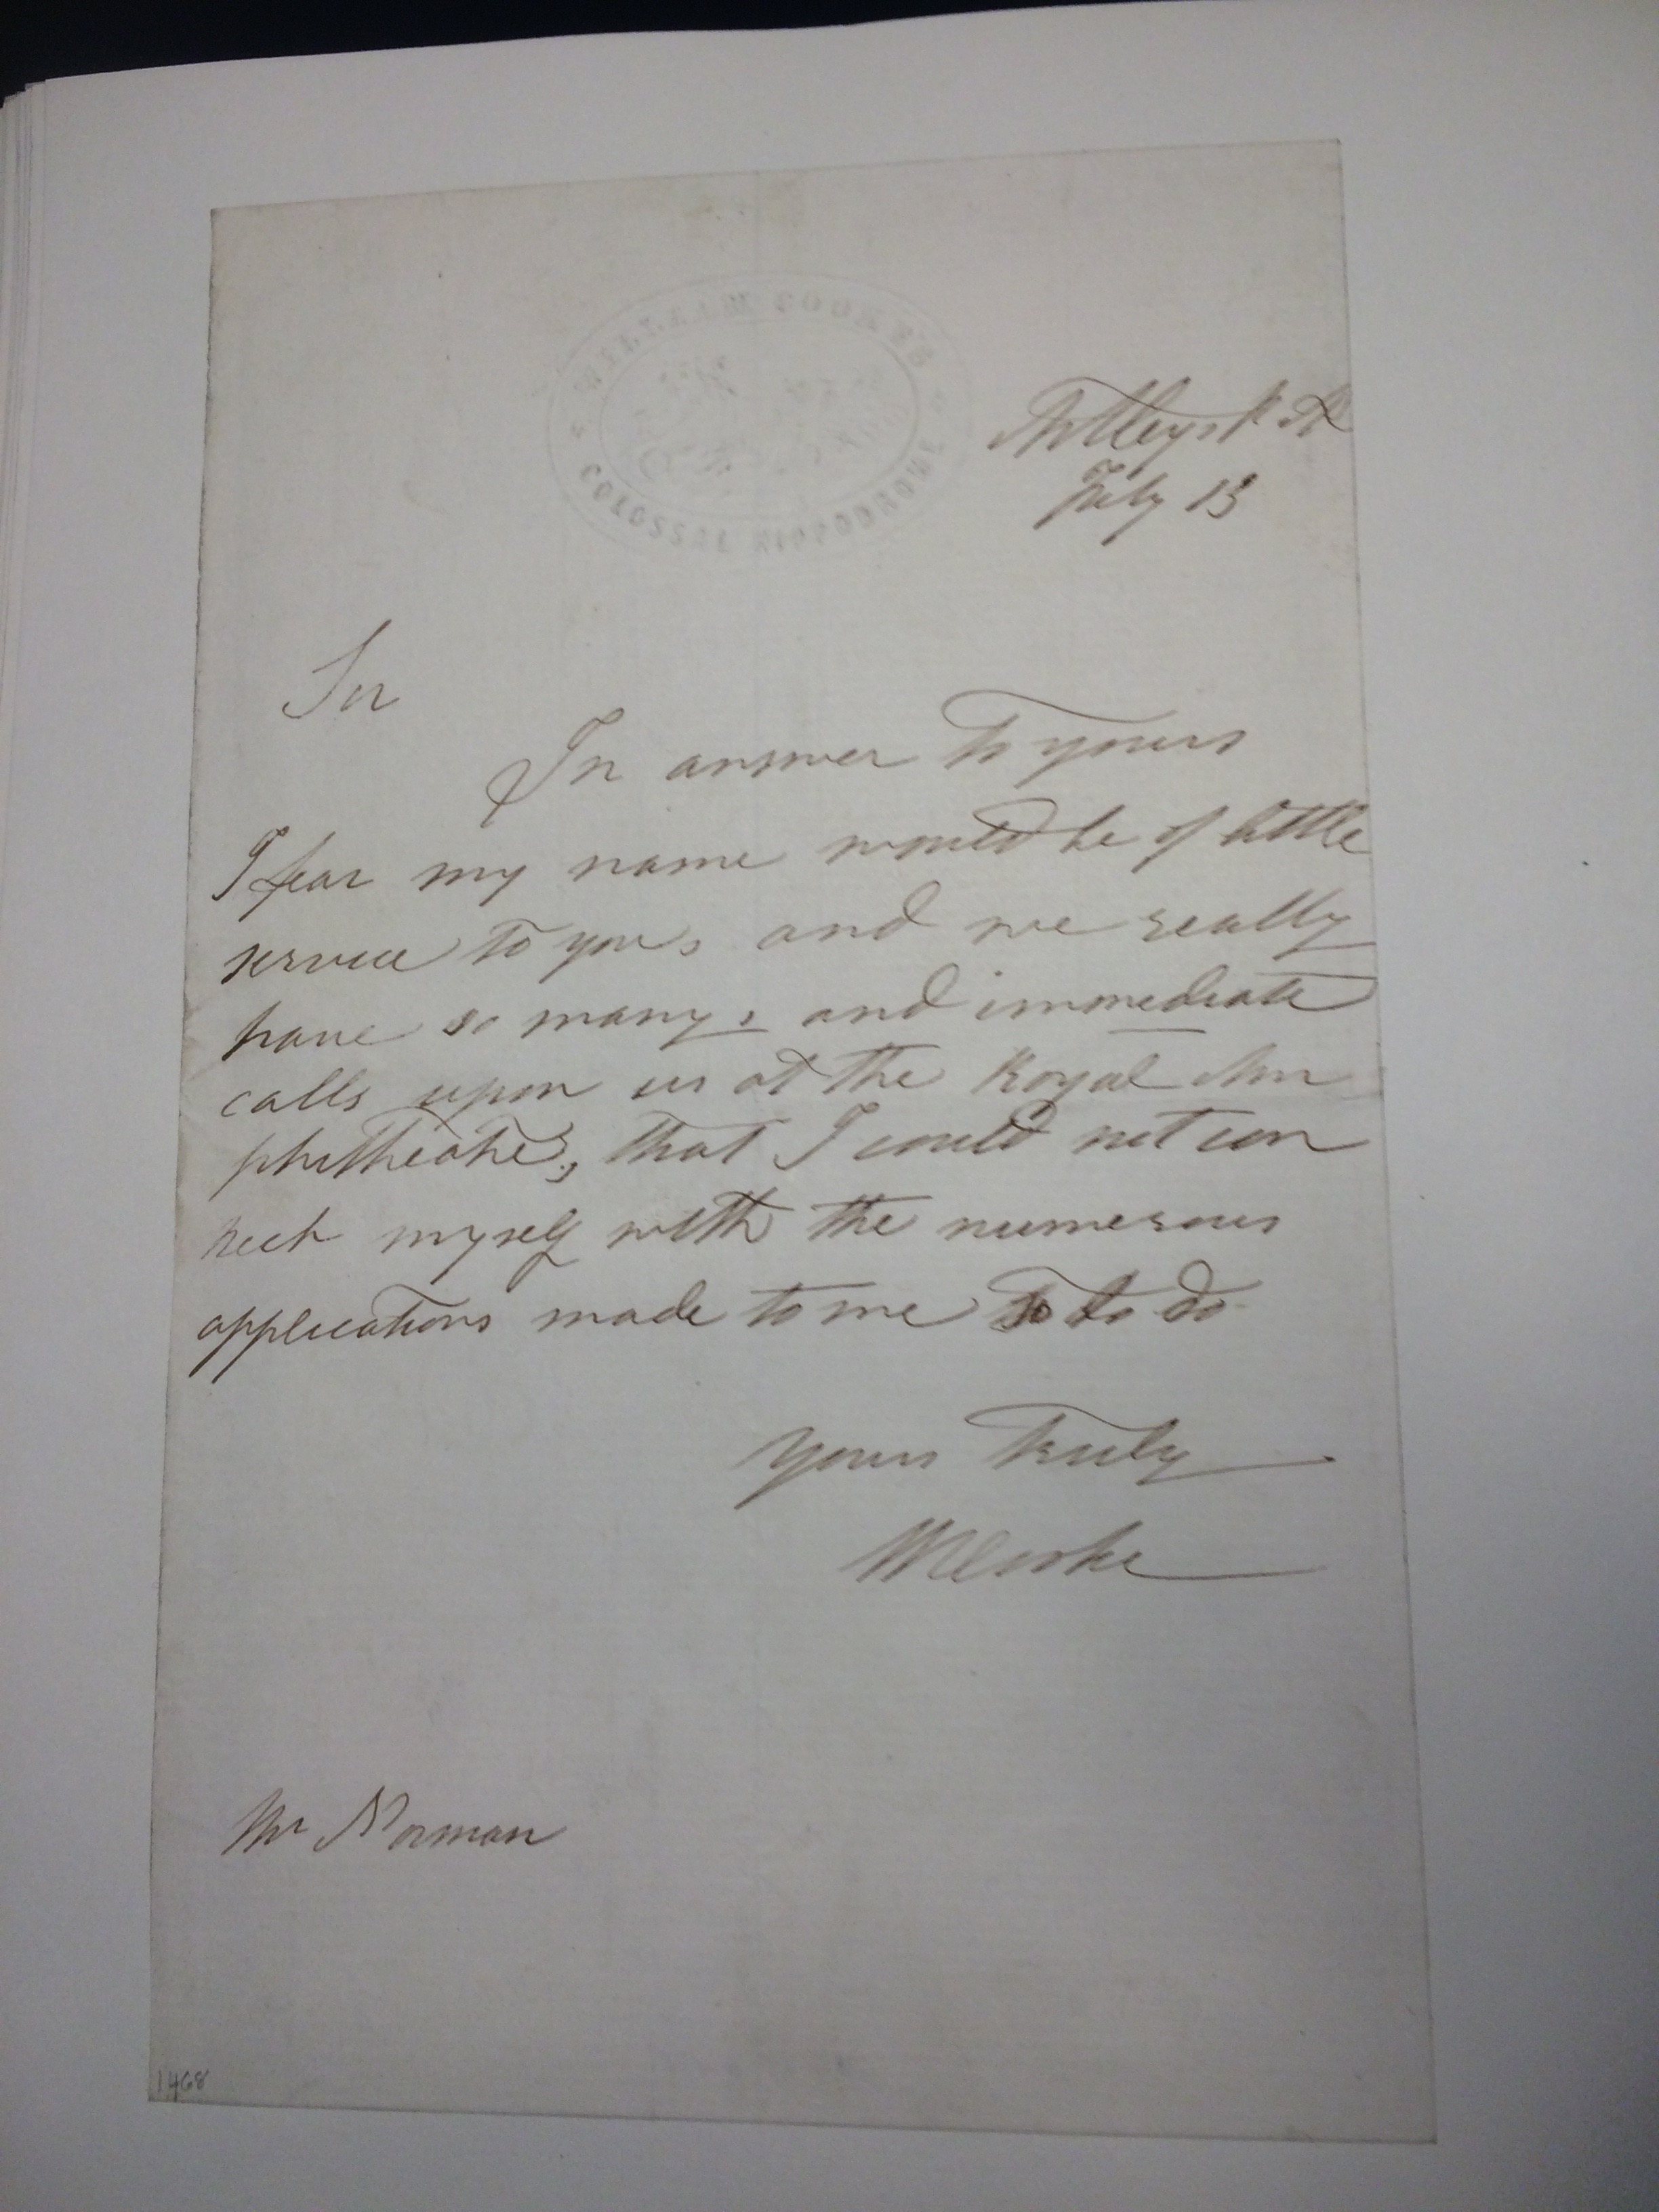 WILLIAM COOKE'S
COLOSSAL HIPPODROME
Astleys R A
July 13
Sir
In answer to yours
I fear my name would be of little
service to you, and we really
have so many, and immediate
calls upon us at the Royal Am
phitheatre, that I could not con
nect myself with the numerous
applications made to me so to do
Yours Truly
WCooke
Mr Norman
1468